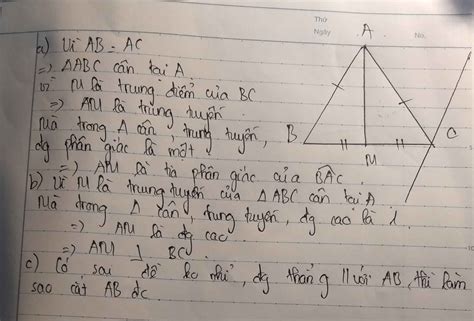 Thứ
Ngày
No.
a) Vì AB = AC
=> ΔABC cân tại A
Vì M là trung điểm của BC
=> AM là trung tuyến
Mà trong Δ cân, trung tuyến,
đg phân giác là một
=> AM là tia phân giác của BAC.
b) Vì M là trung tuyến của ΔABC cân tại A
Mà trong Δ cân, trung tuyến, đg cao là 1.
=> AM là đg cao
=> AM ⊥ BC.
c) Có sau đề ko nhỉ, đg thẳng // với AB, thì làm
sao cắt AB đc
A
B
M
C